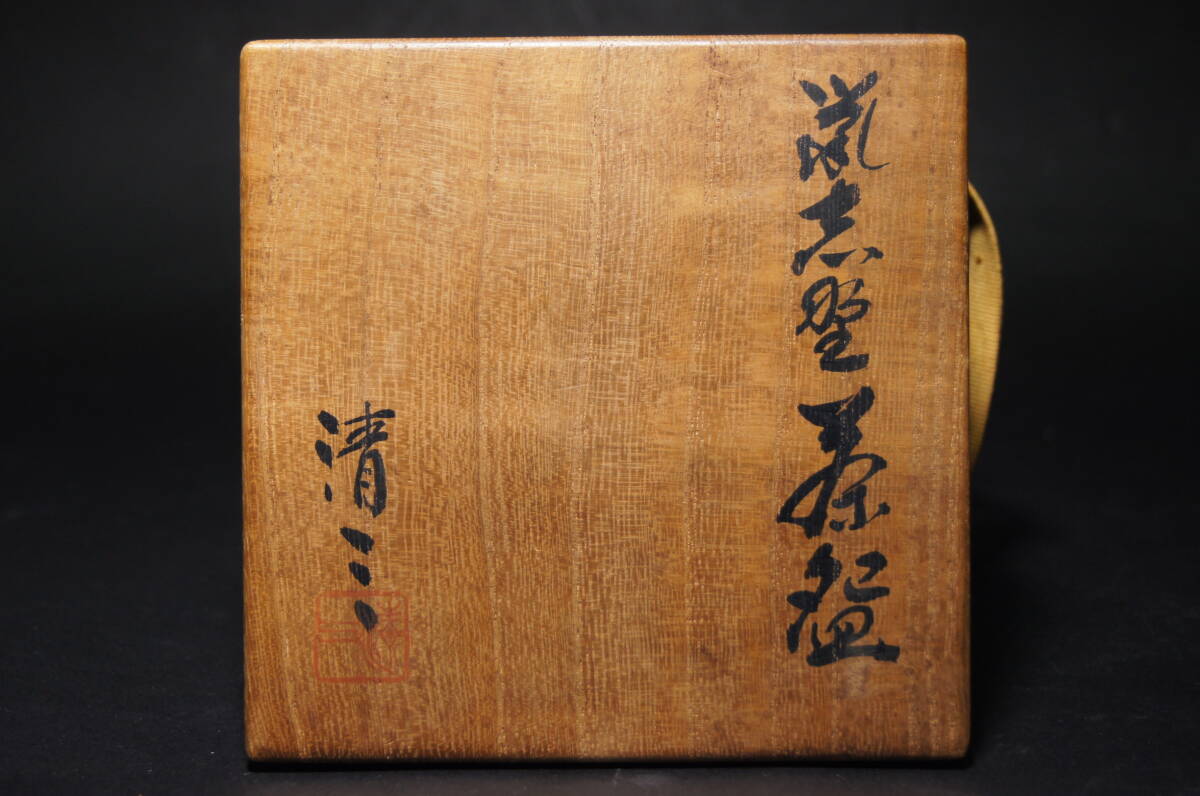 鼡志野茶盌
清三